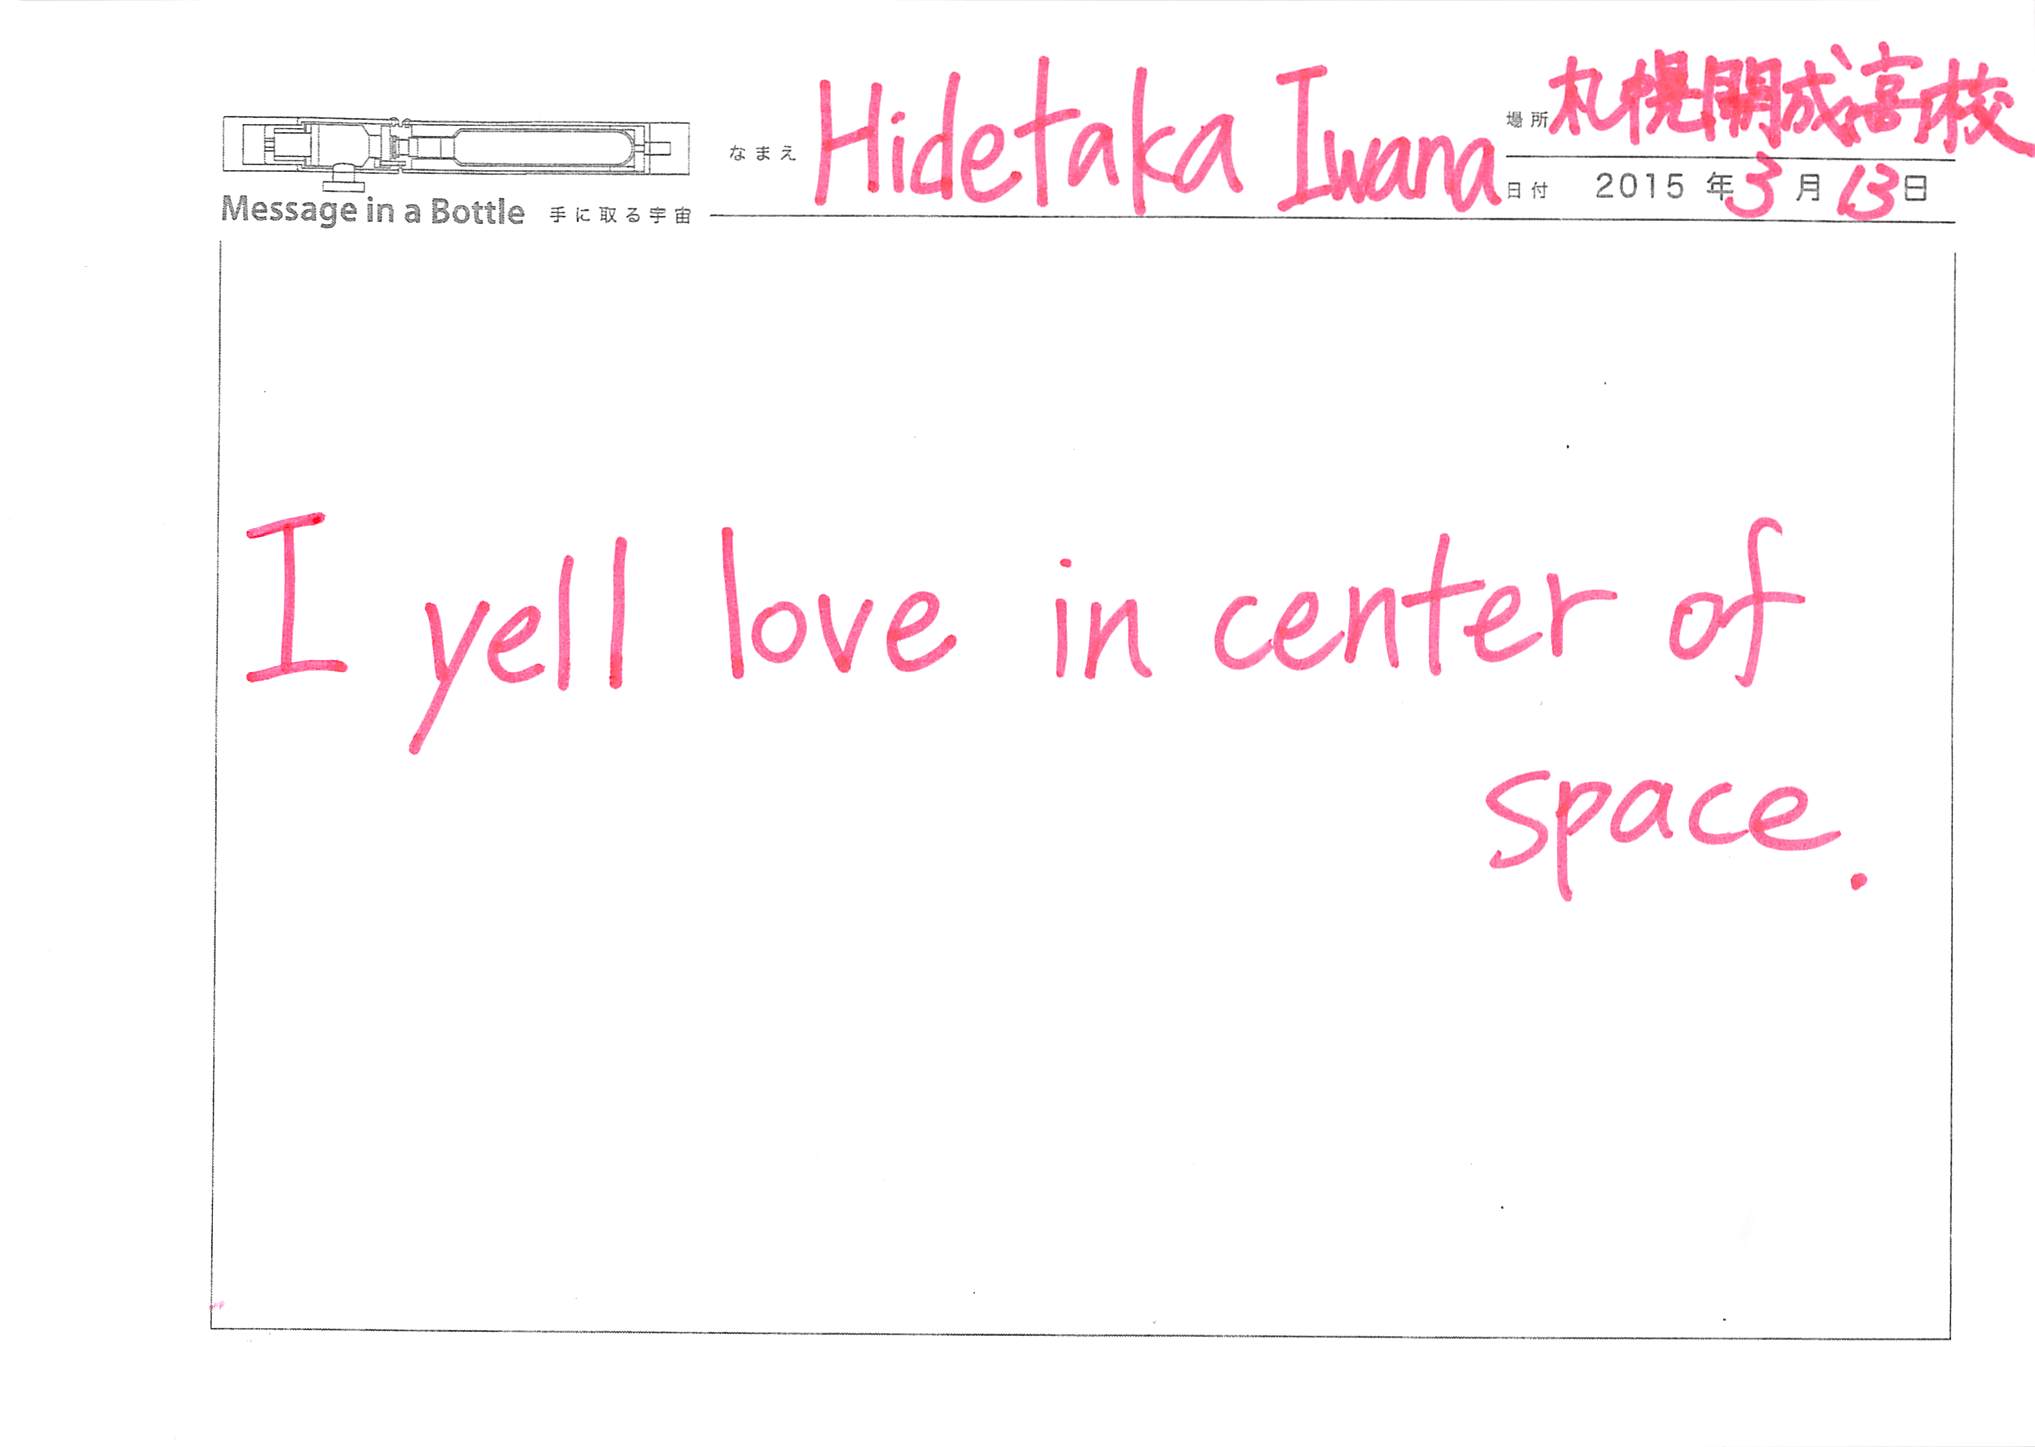 なまえ Hidetaka Iwana
場所 札幌開成高校
日付 2015 年 3 月 13 日
Message in a Bottle 手に取る宇宙
I yell love in center of
space.